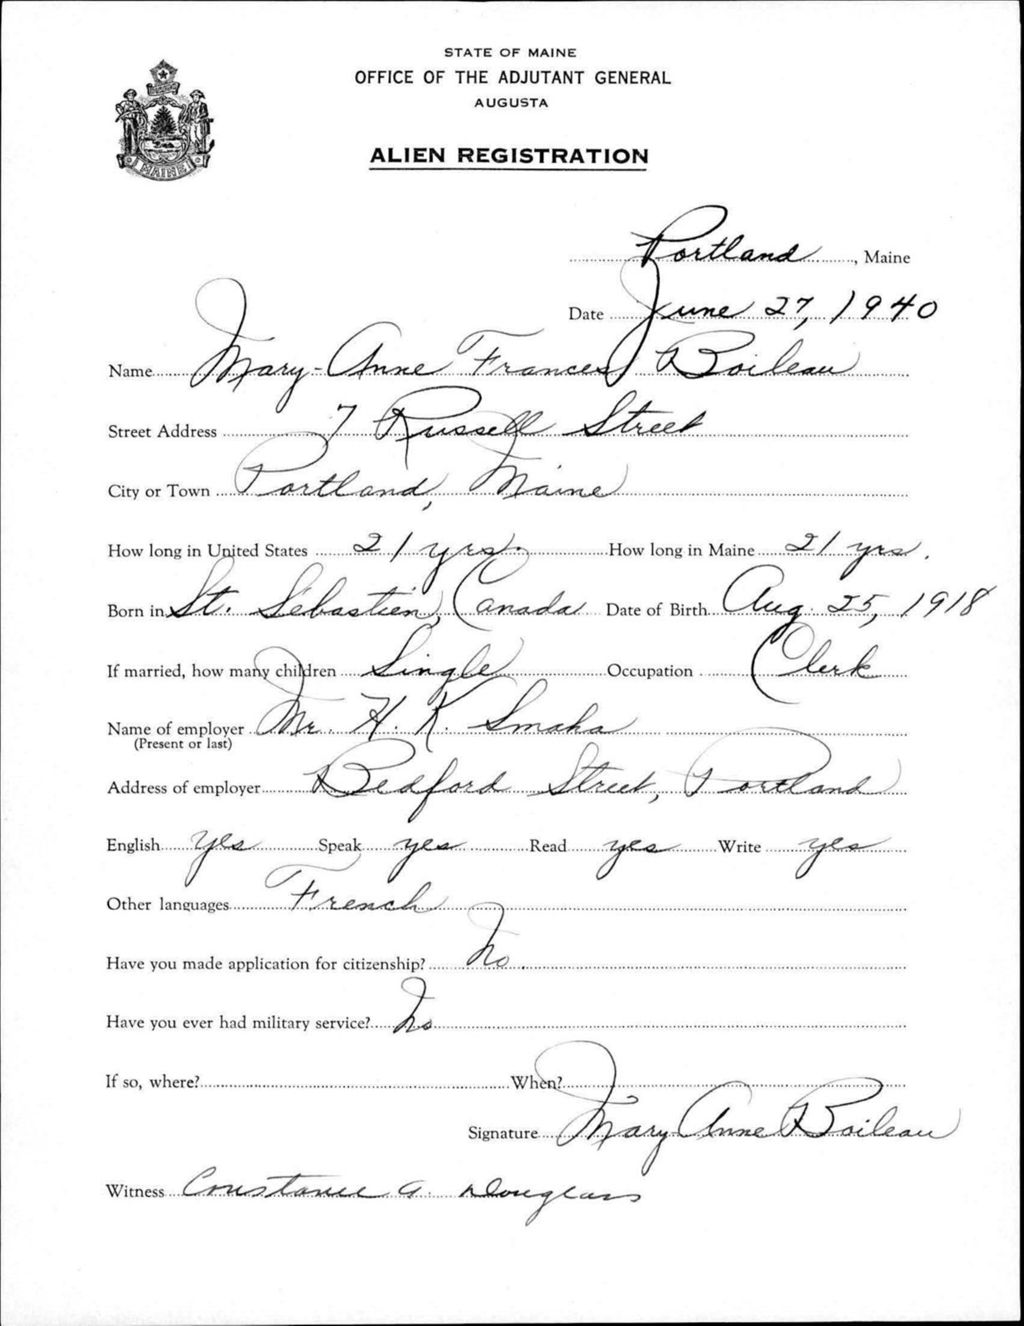 STATE OF MAINE
OFFICE OF THE ADJUTANT GENERAL
AUGUSTA
ALIEN REGISTRATION
MAINE
Portland, Maine
Date June 27, 1940
Name Mary-Anne Frances Boileau
Street Address 7 Russell Street
City or Town Portland, Maine
How long in United States 21 yrs. How long in Maine 21 yrs.
Born in St. Sebastien, Canada Date of Birth Aug 25, 1918
If married, how many children Single Occupation Clerk
Name of employer Mr. H. K. Smaha
(Present or last)
Address of employer Bedford Street, Portland
English yes Speak yes Read yes Write yes
Other languages French
Have you made application for citizenship? No
Have you ever had military service? No
If so, where? When?
Signature Mary Anne Boileau
Witness Constance A. Douglass